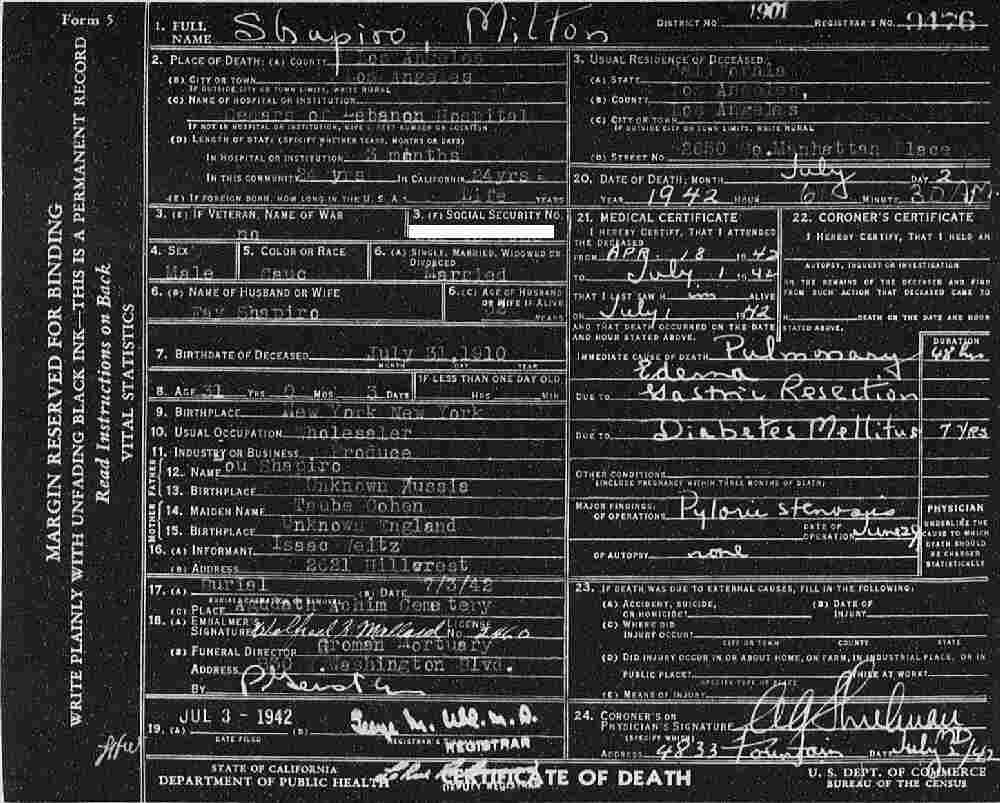 Form 5
MARGIN RESERVED FOR BINDING
WRITE PLAINLY WITH UNFADING BLACK INK—THIS IS A PERMANENT RECORD
Read Instructions on Back
VITAL STATISTICS
1. FULL NAME Shapiro, Milton
DISTRICT NO. 1901 REGISTRAR'S NO. 9476
2. PLACE OF DEATH: (A) COUNTY Los Angeles
(B) CITY OR TOWN Los Angeles
IF OUTSIDE CITY OR TOWN LIMITS, WRITE RURAL
(C) NAME OF HOSPITAL OR INSTITUTION:
Cedars of Lebanon Hospital
IF NOT IN HOSPITAL OR INSTITUTION, GIVE STREET NUMBER OR LOCATION
(D) LENGTH OF STAY: (SPECIFY WHETHER YEARS, MONTHS OR DAYS)
IN HOSPITAL OR INSTITUTION 3 months
IN THIS COMMUNITY 24 yrs IN CALIFORNIA 24yrs
(E) IF FOREIGN BORN, HOW LONG IN THE U.S.A. Life YEARS
3. USUAL RESIDENCE OF DECEASED:
(A) STATE California
(B) COUNTY Los Angeles,
(C) CITY OR TOWN Los Angeles
IF OUTSIDE CITY OR TOWN LIMITS, WRITE RURAL
(D) STREET NO. 2650 So. Manhattan Place
20. DATE OF DEATH: MONTH July DAY 2
YEAR 1942 HOUR 6 MINUTE 30
3. (E) IF VETERAN, NAME OF WAR no
3. (F) SOCIAL SECURITY NO.
4. SEX Male
5. COLOR OR RACE Cauc
6. (A) SINGLE, MARRIED, WIDOWED OR DIVORCED Married
6. (B) NAME OF HUSBAND OR WIFE Fay Shapiro
6. (C) AGE OF HUSBAND OR WIFE IF ALIVE 32 YEARS
7. BIRTHDATE OF DECEASED July 31, 1910
MONTH DAY YEAR
8. AGE 31 YRS. MOS. 3 DAYS
IF LESS THAN ONE DAY OLD
HRS. MIN.
9. BIRTHPLACE New York New York
10. USUAL OCCUPATION Wholesaler
11. INDUSTRY OR BUSINESS Produce
FATHER
12. NAME Lou Shapiro
13. BIRTHPLACE Unknown Russia
MOTHER
14. MAIDEN NAME Taube Cohen
15. BIRTHPLACE Unknown England
16. (A) INFORMANT Isaac Weitz
(B) ADDRESS 2621 Hillcrest
17. (A) Burial (B) DATE 7/3/42
(C) PLACE Agudath Achim Cemetery
18. (A) EMBALMER'S SIGNATURE LICENSE NO.
(B) FUNERAL DIRECTOR Groman Mortuary
ADDRESS Washington Blvd.
BY
19. (A) JUL 3 - 1942 (B)
DATE FILED REGISTRAR'S REGISTRAR
21. MEDICAL CERTIFICATE
I HEREBY CERTIFY, THAT I ATTENDED THE DECEASED
FROM APR. 18 1942
TO July 1 1942
THAT I LAST SAW H im ALIVE
ON July 1 1942
AND THAT DEATH OCCURRED ON THE DATE AND HOUR STATED ABOVE.
22. CORONER'S CERTIFICATE
I HEREBY CERTIFY, THAT I HELD AN
AUTOPSY, INQUEST OR INVESTIGATION
ON THE REMAINS OF THE DECEASED AND FIND FROM SUCH ACTION THAT DECEASED CAME TO
H DEATH ON THE DATE AND HOUR STATED ABOVE.
DURATION
IMMEDIATE CAUSE OF DEATH Pulmonary Edema 48 hrs
DUE TO Gastric Resection
DUE TO Diabetes Mellitus 7 yrs
OTHER CONDITIONS
(INCLUDE PREGNANCY WITHIN THREE MONTHS OF DEATH)
MAJOR FINDINGS:
OF OPERATIONS Pyloric stenosis
DATE OF OPERATION June 29
OF AUTOPSY none
PHYSICIAN
UNDERLINE THE CAUSE TO WHICH DEATH SHOULD BE CHARGED STATISTICALLY
23. IF DEATH WAS DUE TO EXTERNAL CAUSES, FILL IN THE FOLLOWING:
(A) ACCIDENT, SUICIDE, OR HOMICIDE?
(B) DATE OF INJURY
(C) WHERE DID INJURY OCCUR?
CITY OR TOWN COUNTY STATE
(D) DID INJURY OCCUR IN OR ABOUT HOME, ON FARM, IN INDUSTRIAL PLACE, OR IN
PUBLIC PLACE? WHILE AT WORK?
SPECIFY TYPE OF PLACE
(E) MEANS OF INJURY
24. CORONER'S OR PHYSICIAN'S SIGNATURE
(SPECIFY WHICH)
ADDRESS 4833 Fountain DATE July 2/42
STATE OF CALIFORNIA
DEPARTMENT OF PUBLIC HEALTH
DEPUTY REGISTRAR
CERTIFICATE OF DEATH
U. S. DEPT. OF COMMERCE
BUREAU OF THE CENSUS